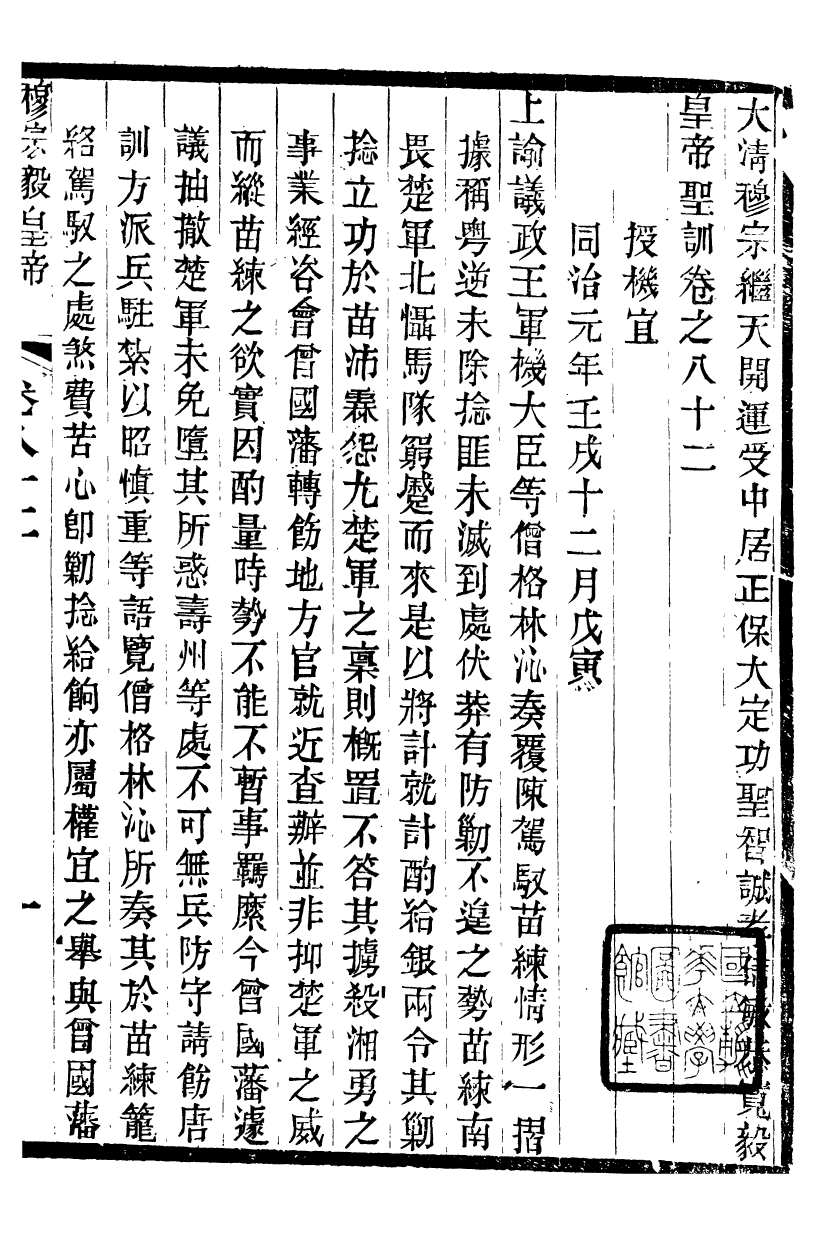 大淸穆宗繼天開運受中居正保大定功聖智誠孝信敏恭寬毅
皇帝聖訓卷之八十二
授機宜
同治元年壬戌十二月戊寅
上諭議政王軍機大臣等僧格林沁奏覆陳駕馭苗練情形一摺
據稱粵逆未除捻匪未滅到處伏莽有防勦不遑之勢苗練南
畏楚軍北懾馬隊窮蹙而來是以將計就計酌給銀兩令其勦
捻立功於苗沛霖怨尤楚軍之稟則槪置不答其擄殺湘勇之
事業經咨會曾國藩轉飭地方官就近查辦並非抑楚軍之威
而縱苗練之欲實因酌量時勢不能不暫事羈縻今曾國藩遽
議抽撤楚軍未免墮其所惑壽州等處不可無兵防守請飭唐
訓方派兵駐紮以昭愼重等語覽僧格林沁所奏其於苗練籠
絡駕馭之處煞費苦心卽勦捻給餉亦屬權宜之舉與曾國藩
穆宗毅皇帝 卷八十二 一
國立北平
大學
圖書
館藏